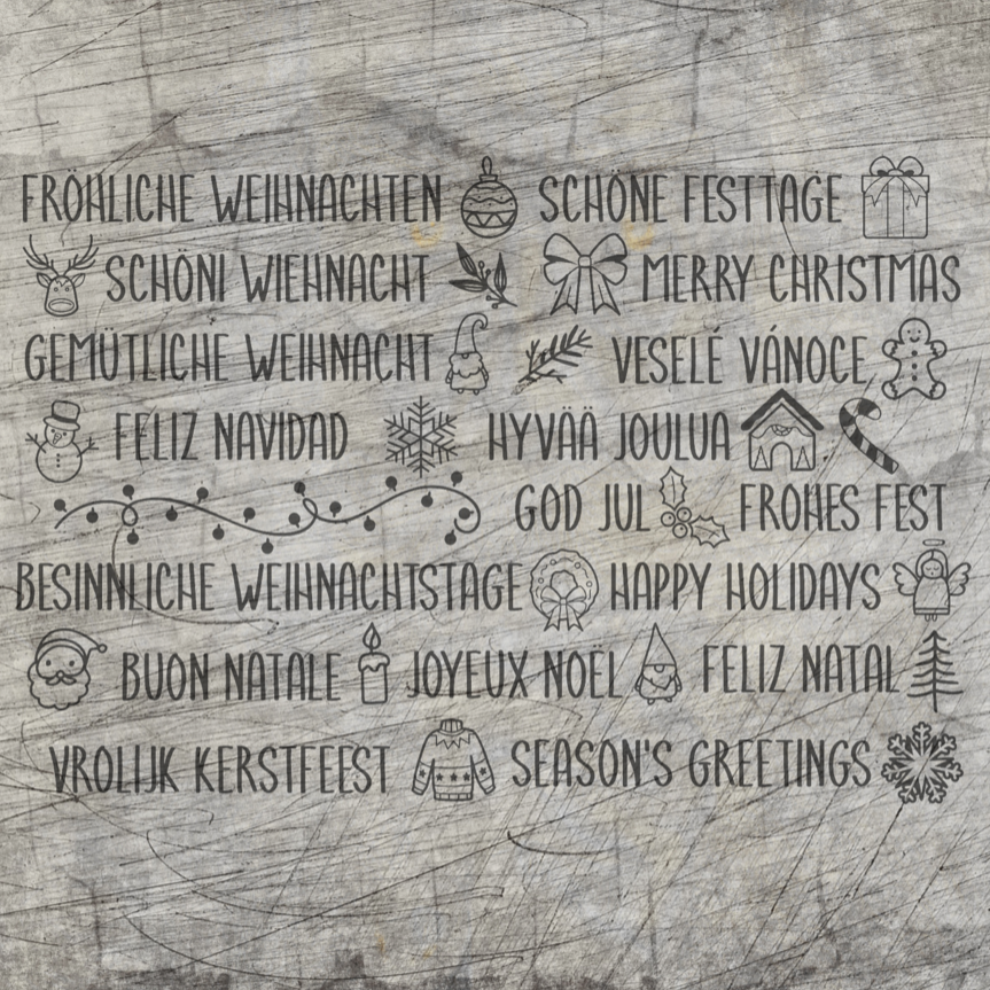 FRÖHLICHE WEIHNACHTEN SCHÖNE FESTTAGE
SCHÖNI WIEHNACHT MERRY CHRISTMAS
GEMÜTLICHE WEIHNACHT VESELÉ VÁNOCE
FELIZ NAVIDAD HYVÄÄ JOULUA
GOD JUL FROHES FEST
BESINNLICHE WEIHNACHTSTAGE HAPPY HOLIDAYS
BUON NATALE JOYEUX NOËL FELIZ NATAL
VROLIJK KERSTFEEST SEASON'S GREETINGS